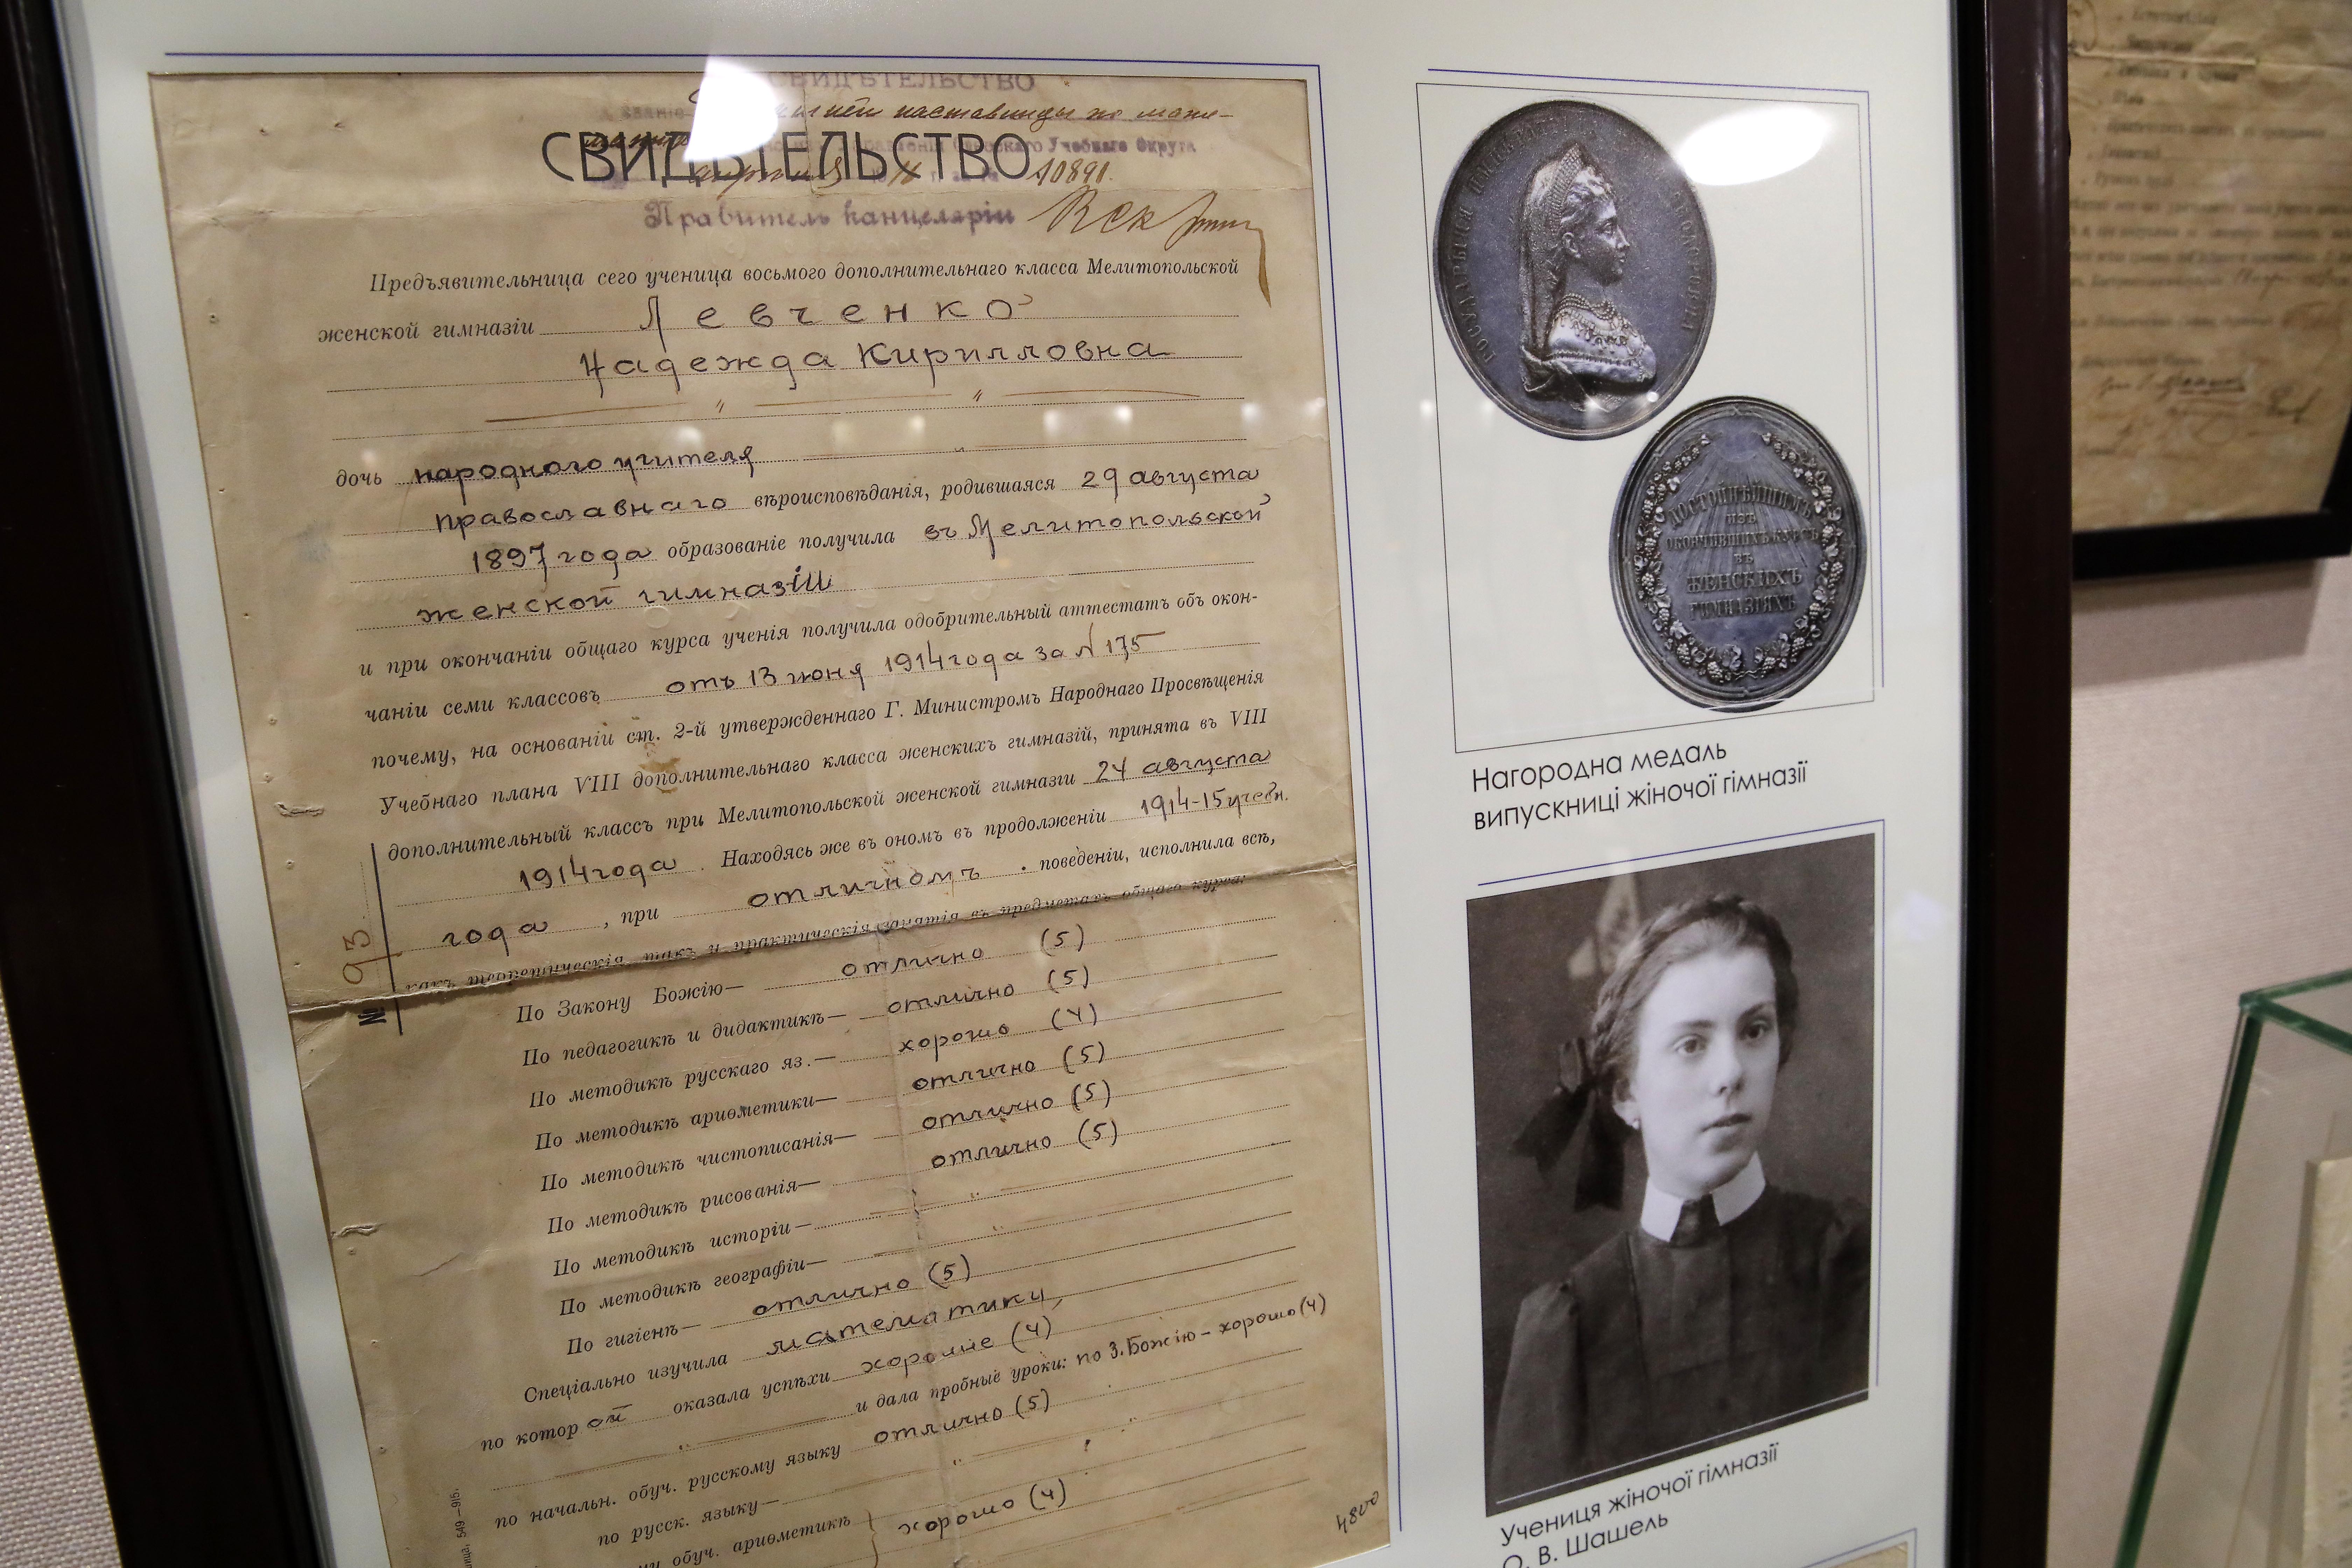 СВИДѢТЕЛЬСТВО
наставницы по мате-
Учебнаго Округа
СВИДѢТЕЛЬСТВО 10891.
Правитель канцеляріи
Предъявительница сего ученица восьмого дополнительнаго класса Мелитопольской
женской гимназіи Левченко
Надежда Кирилловна
дочь народного учителя
православнаго вѣроисповѣданія, родившаяся 29 августа
1897 года образованіе получила въ Мелитопольской
женской гимназіи
и при окончаніи общаго курса ученія получила одобрительный аттестатъ объ окон-
чаніи семи классовъ отъ 13 июня 1914 года за № 175
почему, на основаніи ст. 2-й утвержденнаго Г. Министромъ Народнаго Просвѣщенія
Учебнаго плана VIII дополнительнаго класса женскихъ гимназій, принята въ VIII
дополнительный классъ при Мелитопольской женской гимназіи 24 августа
1914 года . Находясь же въ ономъ въ продолженіи 1914-15 учебн.
года , при отличномъ . поведеніи, исполнила всѣ,
какъ теоретическія, такъ и практическія занятія въ предметахъ общаго курса:
По Закону Божію— отлично (5)
По педагогикѣ и дидактикѣ— отлично (5)
По методикѣ русскаго яз.— хорошо (4)
По методикѣ ариѳметики— отлично (5)
По методикѣ чистописанія— отлично (5)
По методикѣ рисованія— отлично (5)
По методикѣ исторіи—
По методикѣ географіи—
По гигіенѣ— отлично (5)
Спеціально изучила математику,
по котор ой оказала успѣхи хорошие (4)
и дала пробные уроки: по З. Божію - хорошо (4)
по начальн. обуч. русскому языку отлично (5)
по русск. языку—
обуч. ариѳметикѣ хорошо (4)
№ 93
549—915.
4800
ДОСТОЙНѢЙШИМЪ
ИЗЪ
ОКОНЧИВШИХЪ КУРСЪ
ВЪ
ЖЕНСКИХЪ
ГИМНАЗІЯХЪ
Нагородна медаль
випускниці жіночої гімназії
Учениця жіночої гімназії
О. В. Шашель